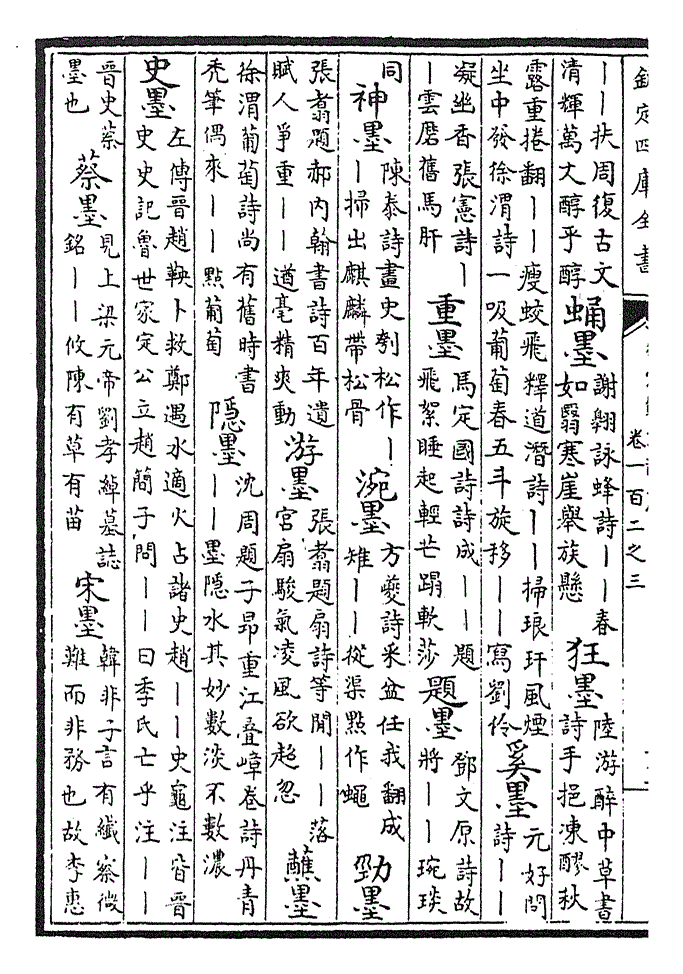 欽定四庫全書
卷一百二之三
——扶周復古文
清輝萬丈醇乎醇
蛹墨
謝翱詠蜂詩——春
如翳寒崖舉族懸
狂墨
陸游醉中草書
詩手挹凍醪秋
露重捲翻——瘦蛟飛釋道潛詩——掃琅玕風煙
坐中發徐渭詩一吸葡萄春五斗旋移——寫劉伶
奚墨
元好問
詩——
凝幽香張憲詩—
—雲磨舊馬肝
重墨
馬定國詩詩成——題
飛絮睡起輕芒蹋軟莎
題墨
鄧文原詩故
將——琬琰
同
神墨
陳泰詩畫史刳松作—
—掃出麒麟帶松骨
涴墨
方夔詩采盆任我翻成
雉——從渠點作蠅
勁墨
張翥題郝内翰書詩百年遺
賦人爭重——遒毫精爽動
游墨
張翥題扇詩等閒——落
宮扇駿氣凌風欲超忽
蘸墨
徐渭葡萄詩尚有舊時書
秃筆偶來——點葡萄
隱墨
沈周題子昂重江叠嶂卷詩丹青
——墨隱水其妙數淡不數濃
史墨
左傳晉趙鞅卜救鄭遇水適火占諸史趙——史龜注皆晉
史史記魯世家定公立趙簡子問——曰季氏亡乎注——
晉史蔡
墨也
蔡墨
見上梁元帝劉孝綽墓誌
銘——攸陳有草有苗
宋墨
韓非子言有纖察微
難而非務也故李惠